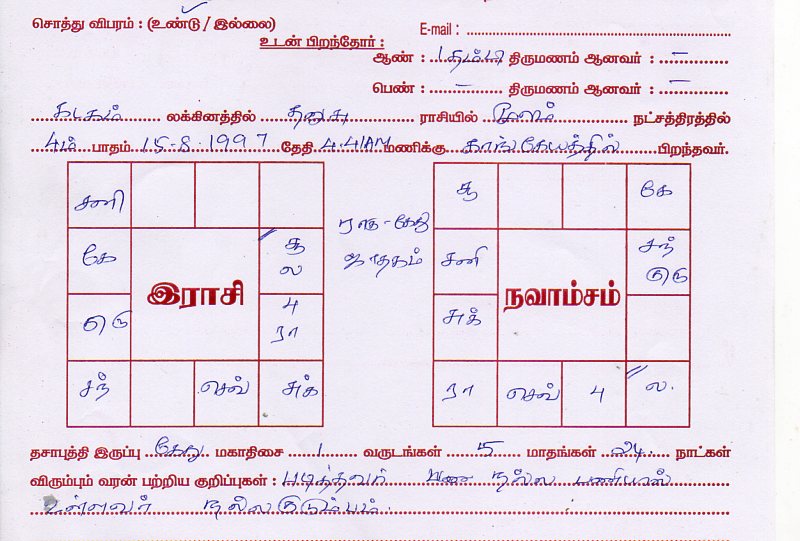 சொத்து விபரம் : (உண்டு / இல்லை)
E-mail :
உடன் பிறந்தோர் :
ஆண் : 1 தம்பி திருமணம் ஆனவர் : –
பெண் : – திருமணம் ஆனவர் : –
கடகம் லக்கினத்தில் தனுசு ராசியில் மூலம் நட்சத்திரத்தில்
4ம் பாதம் 15-8-1997 தேதி 4.41AM மணிக்கு காங்கேயத்தில் பிறந்தவர்.
சனி
கே
சூ
ல
குரு
4
ரா
சந்
செவ்
சுக்
இராசி
ராகு - கேது
ஜாதகம்
சூ
கே
சனி
சந்
குரு
சுக்
ரா
செவ்
4
ல.
நவாம்சம்
தசாபுத்தி இருப்பு கேது மகாதிசை 1 வருடங்கள் 5 மாதங்கள் 24 நாட்கள்
விரும்பும் வரன் பற்றிய குறிப்புகள் : படித்தவர் நல்ல பணியில்
உள்ளவர் நல்ல குடும்பம்.